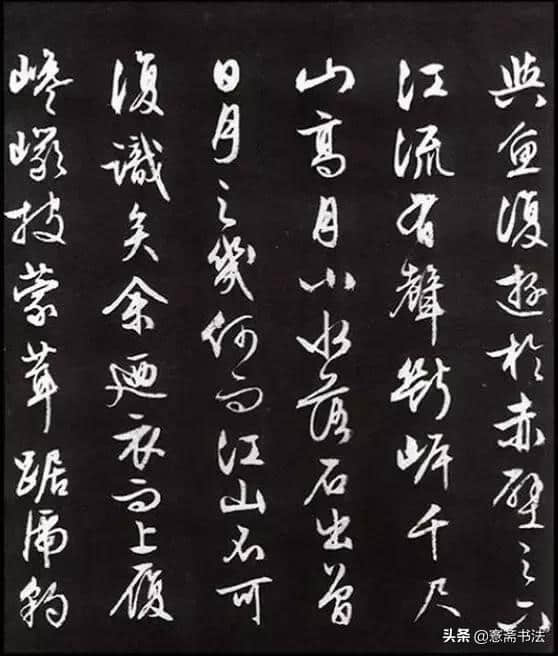 與魚復遊於赤壁之下
江流有聲斷岸千尺
山高月小水落石出曾
日月之幾何而江山不可
復識矣余迺衣而上履
巉巖披蒙茸踞虎豹
头条 @意斋书法